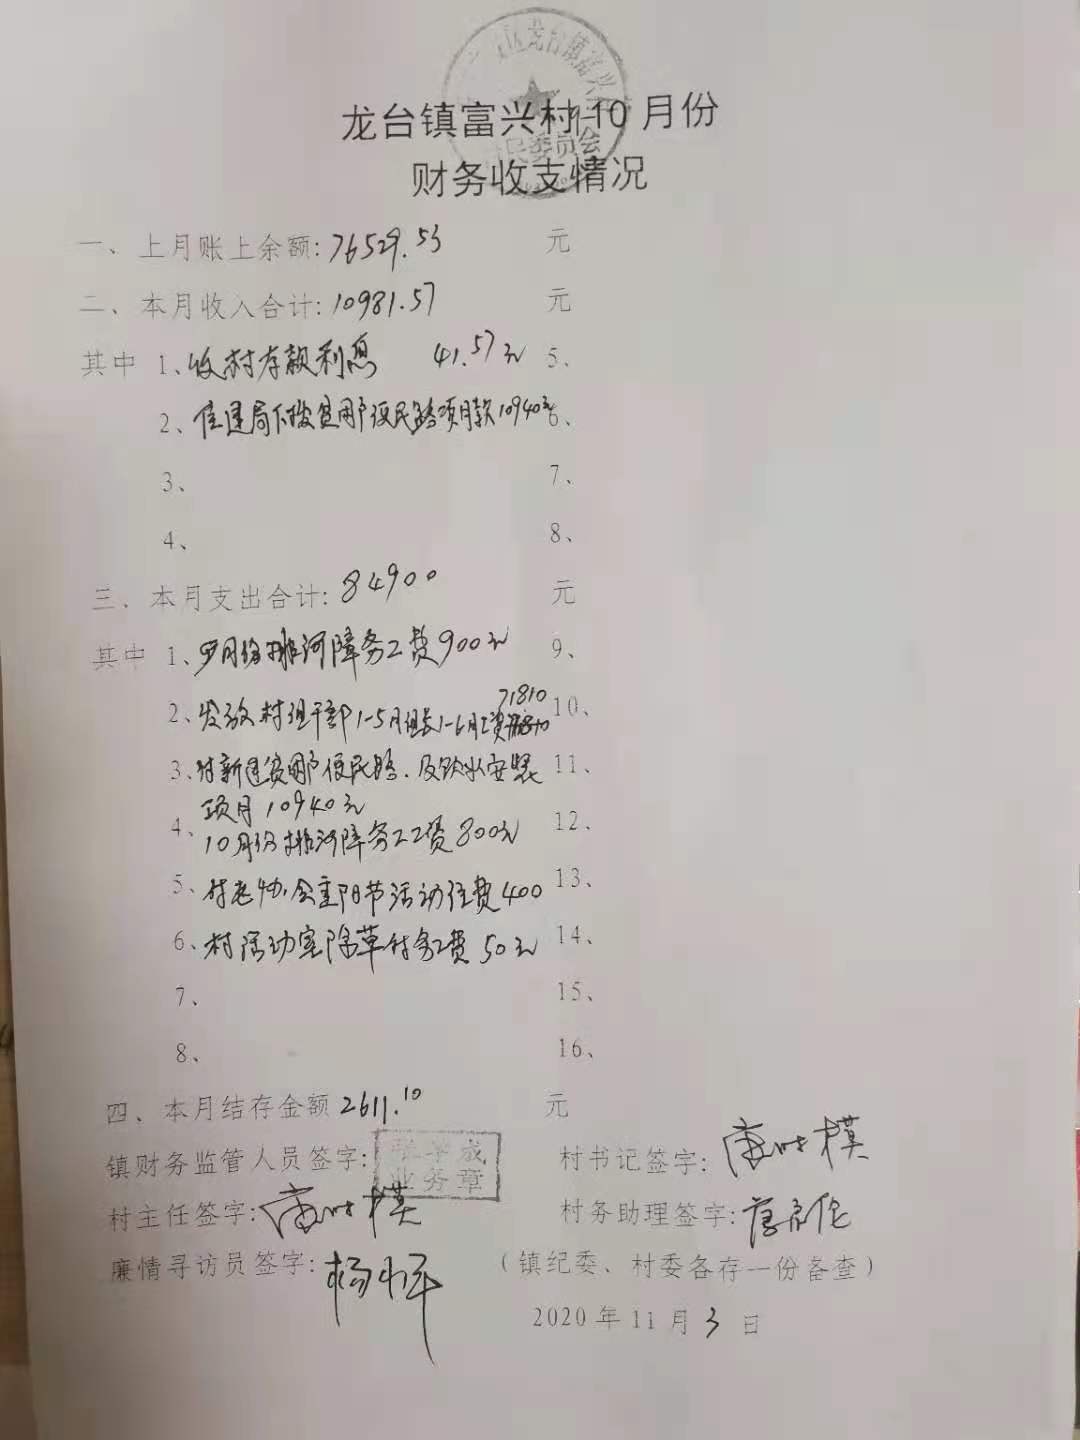 龙台镇富兴村9-10月份
财务收支情况
民委员会
一、上月账上余额:76529.53 元
二、本月收入合计:10981.57 元
其中 1、收村存款利息 41.57元 5、
2、住建局下拨贫困户便民路项目款10940元 6、
3、 7、
4、 8、
三、本月支出合计:84900 元
其中 1、9月份排河障务工费900元 9、
71810
2、发放村组干部1-5月组长1-6月工资 10、
3、付新建贫困户便民路.及饮水安装 11、
项目10940元
4、10月份排河障务工工资800元 12、
5、付老协会重阳节活动经费400 13、
6、村活动室除草付务工费50元 14、
7、 15、
8、 16、
四、本月结存金额2611.10 元
镇财务监管人员签字: 成
业务章
村书记签字: 模
村主任签字: 模
村务助理签字:
廉情寻访员签字:杨
(镇纪委、村委各存一份备查)
2020年11月3日